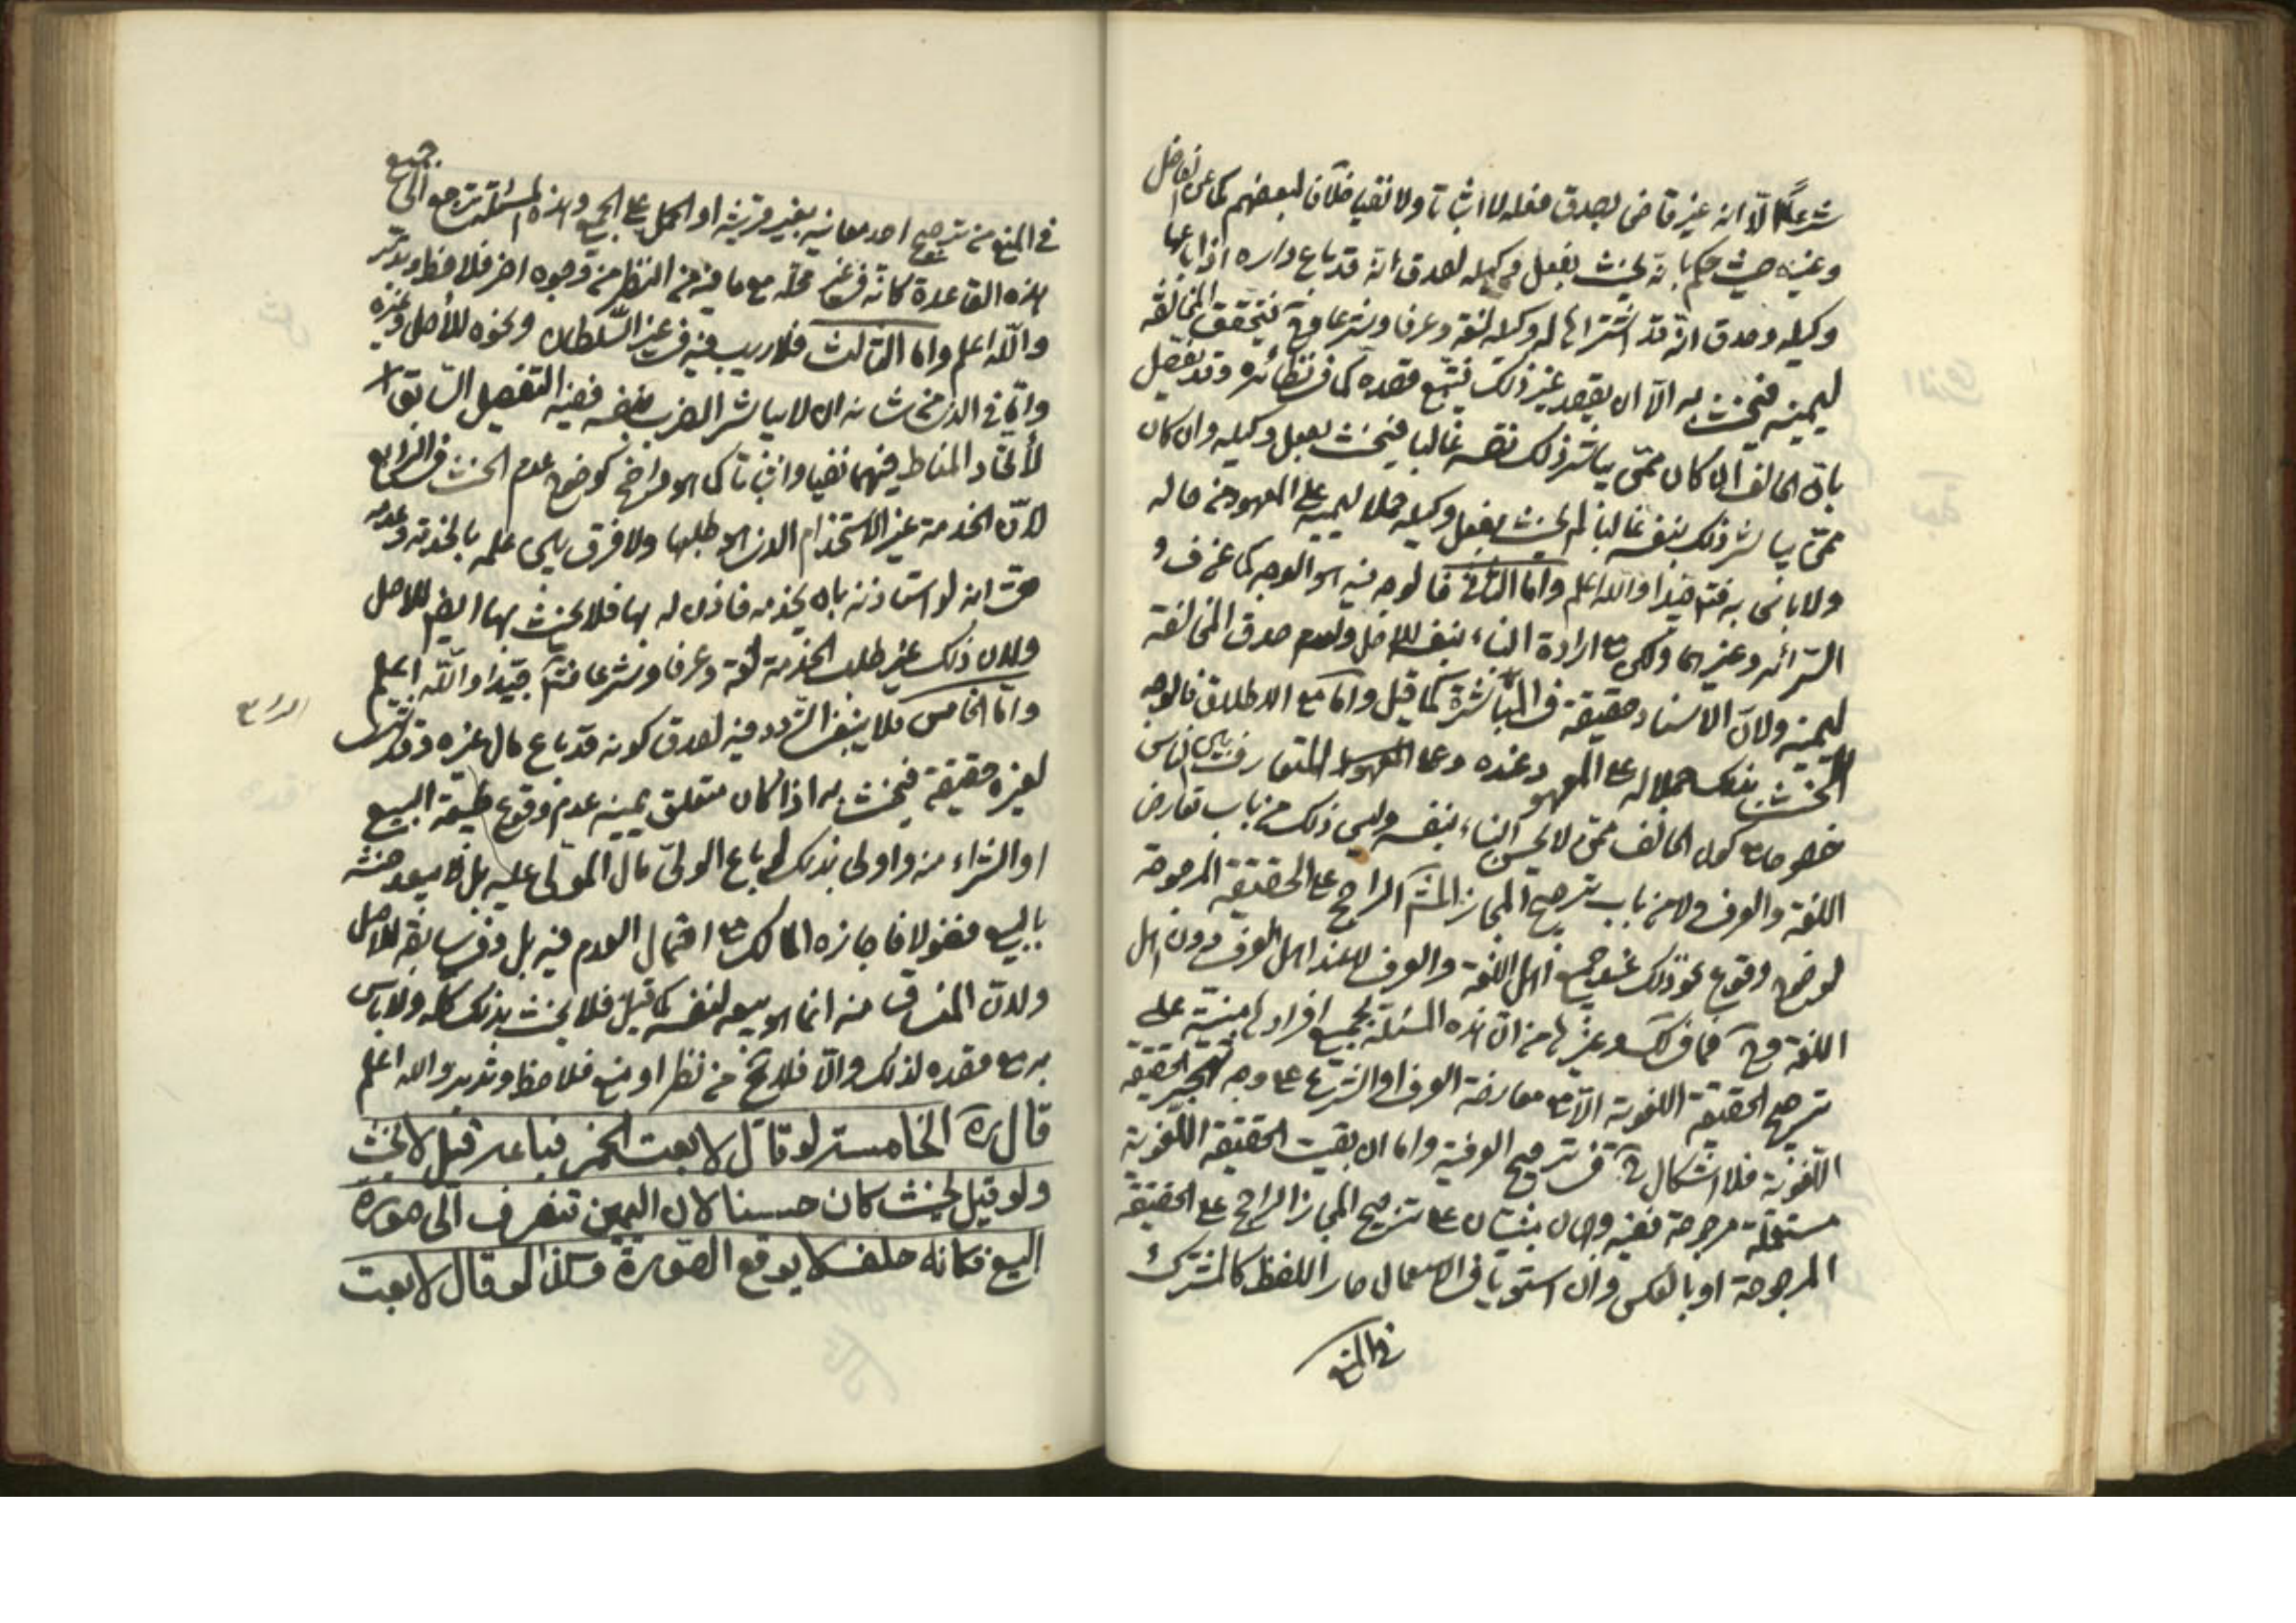 شرعا الا انه غير قاض بصدق فعله لا اثباتا ولا نفيا خلافا لبعضهم كما عن الفاضل
وغيره حيث حكم بانه يحنث بفعل وكيله لصدق انه قد باع داره اذا باعها
وكيله وصدق انه قد اشتراها له وكيله لغة وعرفا وشرعا وح فيتحقق المخالفة
ليمينه فيحنث به الا ان يقصد غير ذلك فيتبع قصده كما في نظائره وقد يفصل
بان الحالف ان كان ممن يباشر ذلك بنفسه غالبا فيحنث بفعل وكيله وان كان
ممن يباشر ذلك بنفسه غالبا لم يحنث بفعل وكيله حملا ليمينه على المعهود من حاله
ولا باس به فتم جيدا والله اعلم واما الثاني فالوجه فيه هو الوجه كما عن ف و
السرائر وغيرهما ولكن مع ارادة البناء بنفسه للاصل ولعدم صدق المخالفة
ليمينه ولان الاسناد حقيقة في المباشرة كما قيل واما مع الاطلاق فالوجه
الحنث بذلك حملا له على المعهود عنده وعلى المعهود المتعارف بين الناس
خصوصا مع كون الحالف ممن لا يحسن البناء بنفسه وليس ذلك من باب تعارض
اللغة والعرف ولا من باب ترجيح المجاز المشهـ الراجح على الحقيقة المرجوحة
لوضوح وقوع نحو ذلك عند جميع اهل اللغة والعرف لا عند اهل العرف دون اهل
اللغة وح فما في لك وغيرها من ان هذه المسئلة بجميع افرادها مبنية على
ترجيح الحقيقة اللغوية الا مع معارضة العرف او الشرع على وجه تهجر الحقيقة
اللغوية فلا اشكال ح في ترجيح العرفية واما ان بقيت الحقيقة اللغوية
مستعملة مرجوحة ففيه وجهان مبنيان على ترجيح المجاز الراجح على الحقيقة
المرجوحة او بالعكس وان استويا في الاستعمال صار اللفظ كالمشترك
في المنع
في المنع من ترجيح احد معانيه بغير قرينة او الحمل على الجميع وهذه المسئلة ترجع الى جميع
هذه القاعدة كانه في غير محله مع ما فيه من النظر من وجوه اخر فلاحظ وتدبر
والله اعلم واما الثالث فلا ريب فيه في غير السلطان ونحوه للاصل وغيره
واما في الذي من شانه ان لا يباشر الضرب بنفسه ففيه التفصيل السابق
لاتحاد المناط فيهما نفيا واثباتا كما هو واضح كوضوح عدم الحنث في الرابع
لان الخدمة غير الاستخدام الذي هو طلبها ولا فرق بين علمه بالخدمة وعدمه
حتى انه لو استاذنه بان يخدمه فاذن له بها فلا يحنث بها ايضا للاصل
ولان ذلك غير طلب الخدمة لغة وعرفا وشرعا فتم جيدا والله اعلم
واما الخامس فلا ينبغي التردد فيه لصدق كونه قد باع مال غيره
الرابع
لغيره حقيقة فيحنث به اذا كان متعلق يمينه عدم وقوع طبيعة البيع
او الشراء منه واولى بذلك لو باع الولي مال المولى عليه بل لا يبعد حنثه
بالبيع فضولا فاجازه المالك مع احتمال العدم فيه بل وفي سابقه للاصل
ولان المنساق منه انما هو بيعه لنفسه كما قيل فلا يحنث بذلك كله ولا باس
به مع قصده لذلك والا فلا يخ من نظر او منع فلاحظ وتدبر والله اعلم
قال ره الخامسة لو قال لا بعت الخمر فباعه قيل لا يحنث
ولو قيل يحنث كان حسنا لان اليمين تنصرف الى صورة
البيع فكانه حلف لا يوقع الصورة وكذا لو قال لا بعت